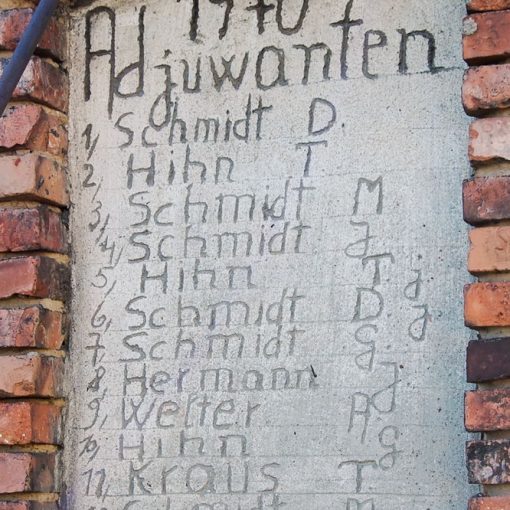 1940
Adjuwanten
1, Schmidt D.
2, Hihn T
3, Schmidt M
4, Schmidt J
5, Hihn T j
6, Schmidt D. j
7, Schmidt G.
8, Hermann J.
9, Welter A
10, Hihn g
11, Kraus T
Schmidt M